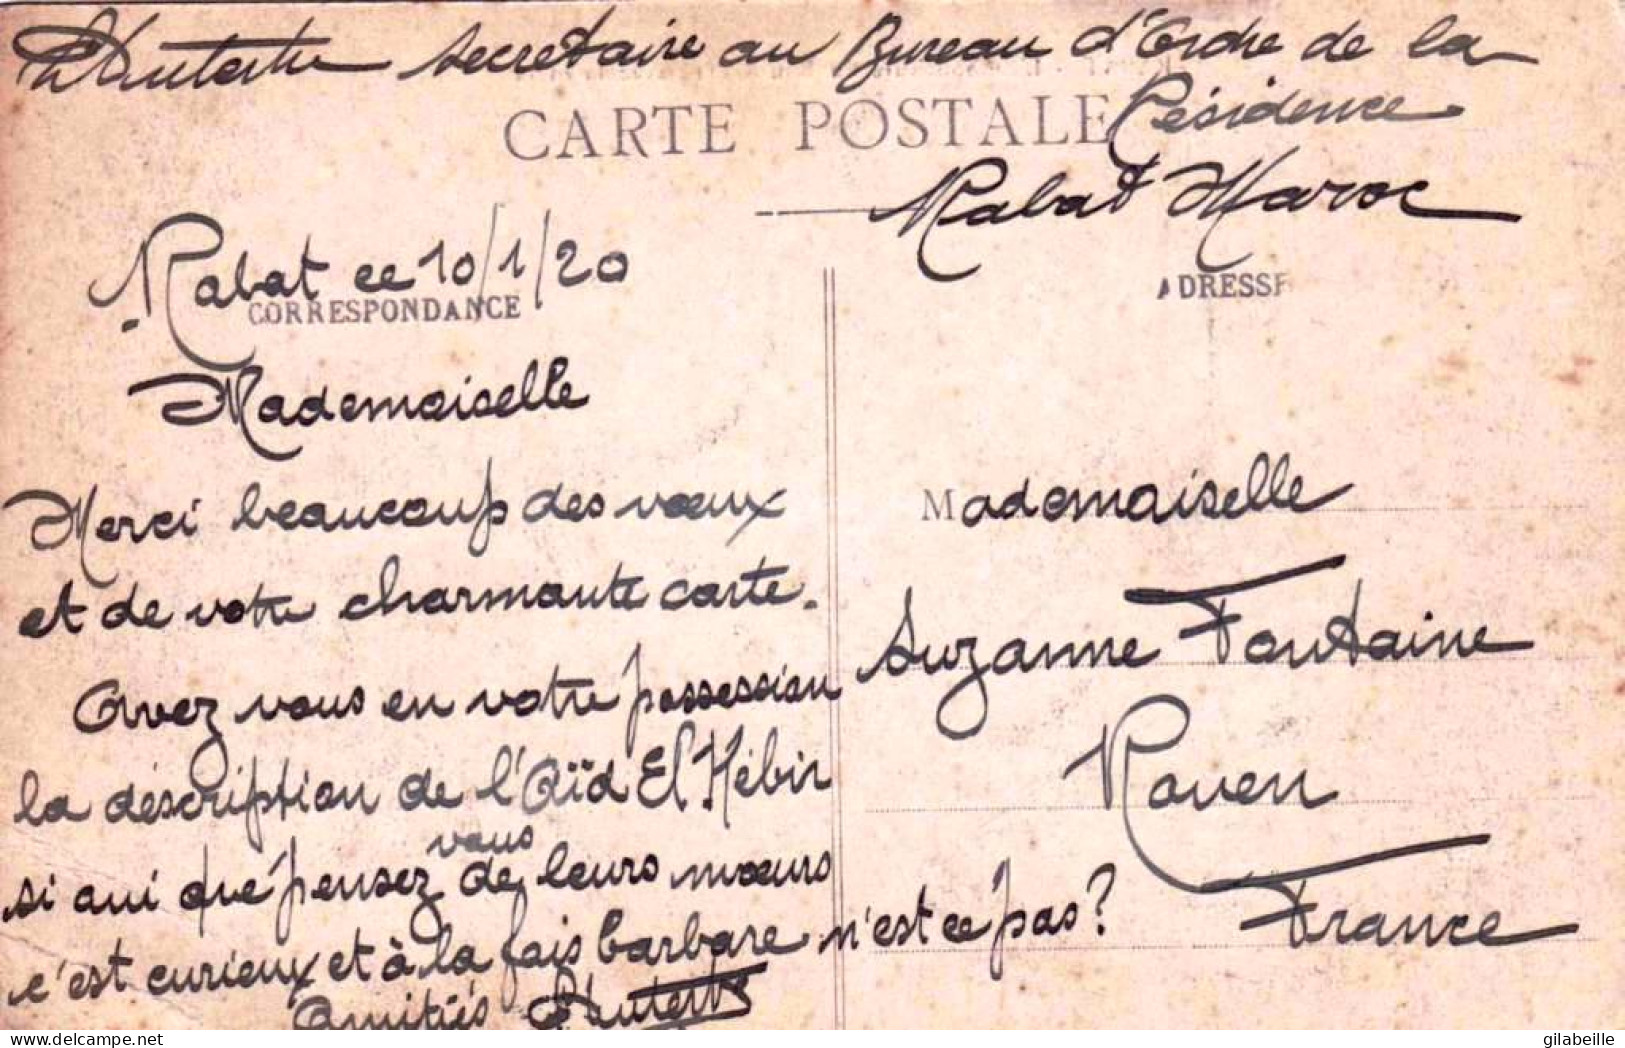 secretaire au Bureau d'Ordre de la
Résidence
Rabat Maroc
CARTE POSTALE
CORRESPONDANCE
ADRESSE
Rabat ce 10/1/20
Mademoiselle
Merci beaucoup des vœux
et de votre charmante carte.
Avez vous en votre possession
la déscription de l'Aïd El Kébir
si oui que pensez vous de leurs mœurs
c'est curieux et à la fois barbare n'est ce pas?
Amitiés
Mademoiselle
Suzanne Fontaine
Rouen
France
gilabeille